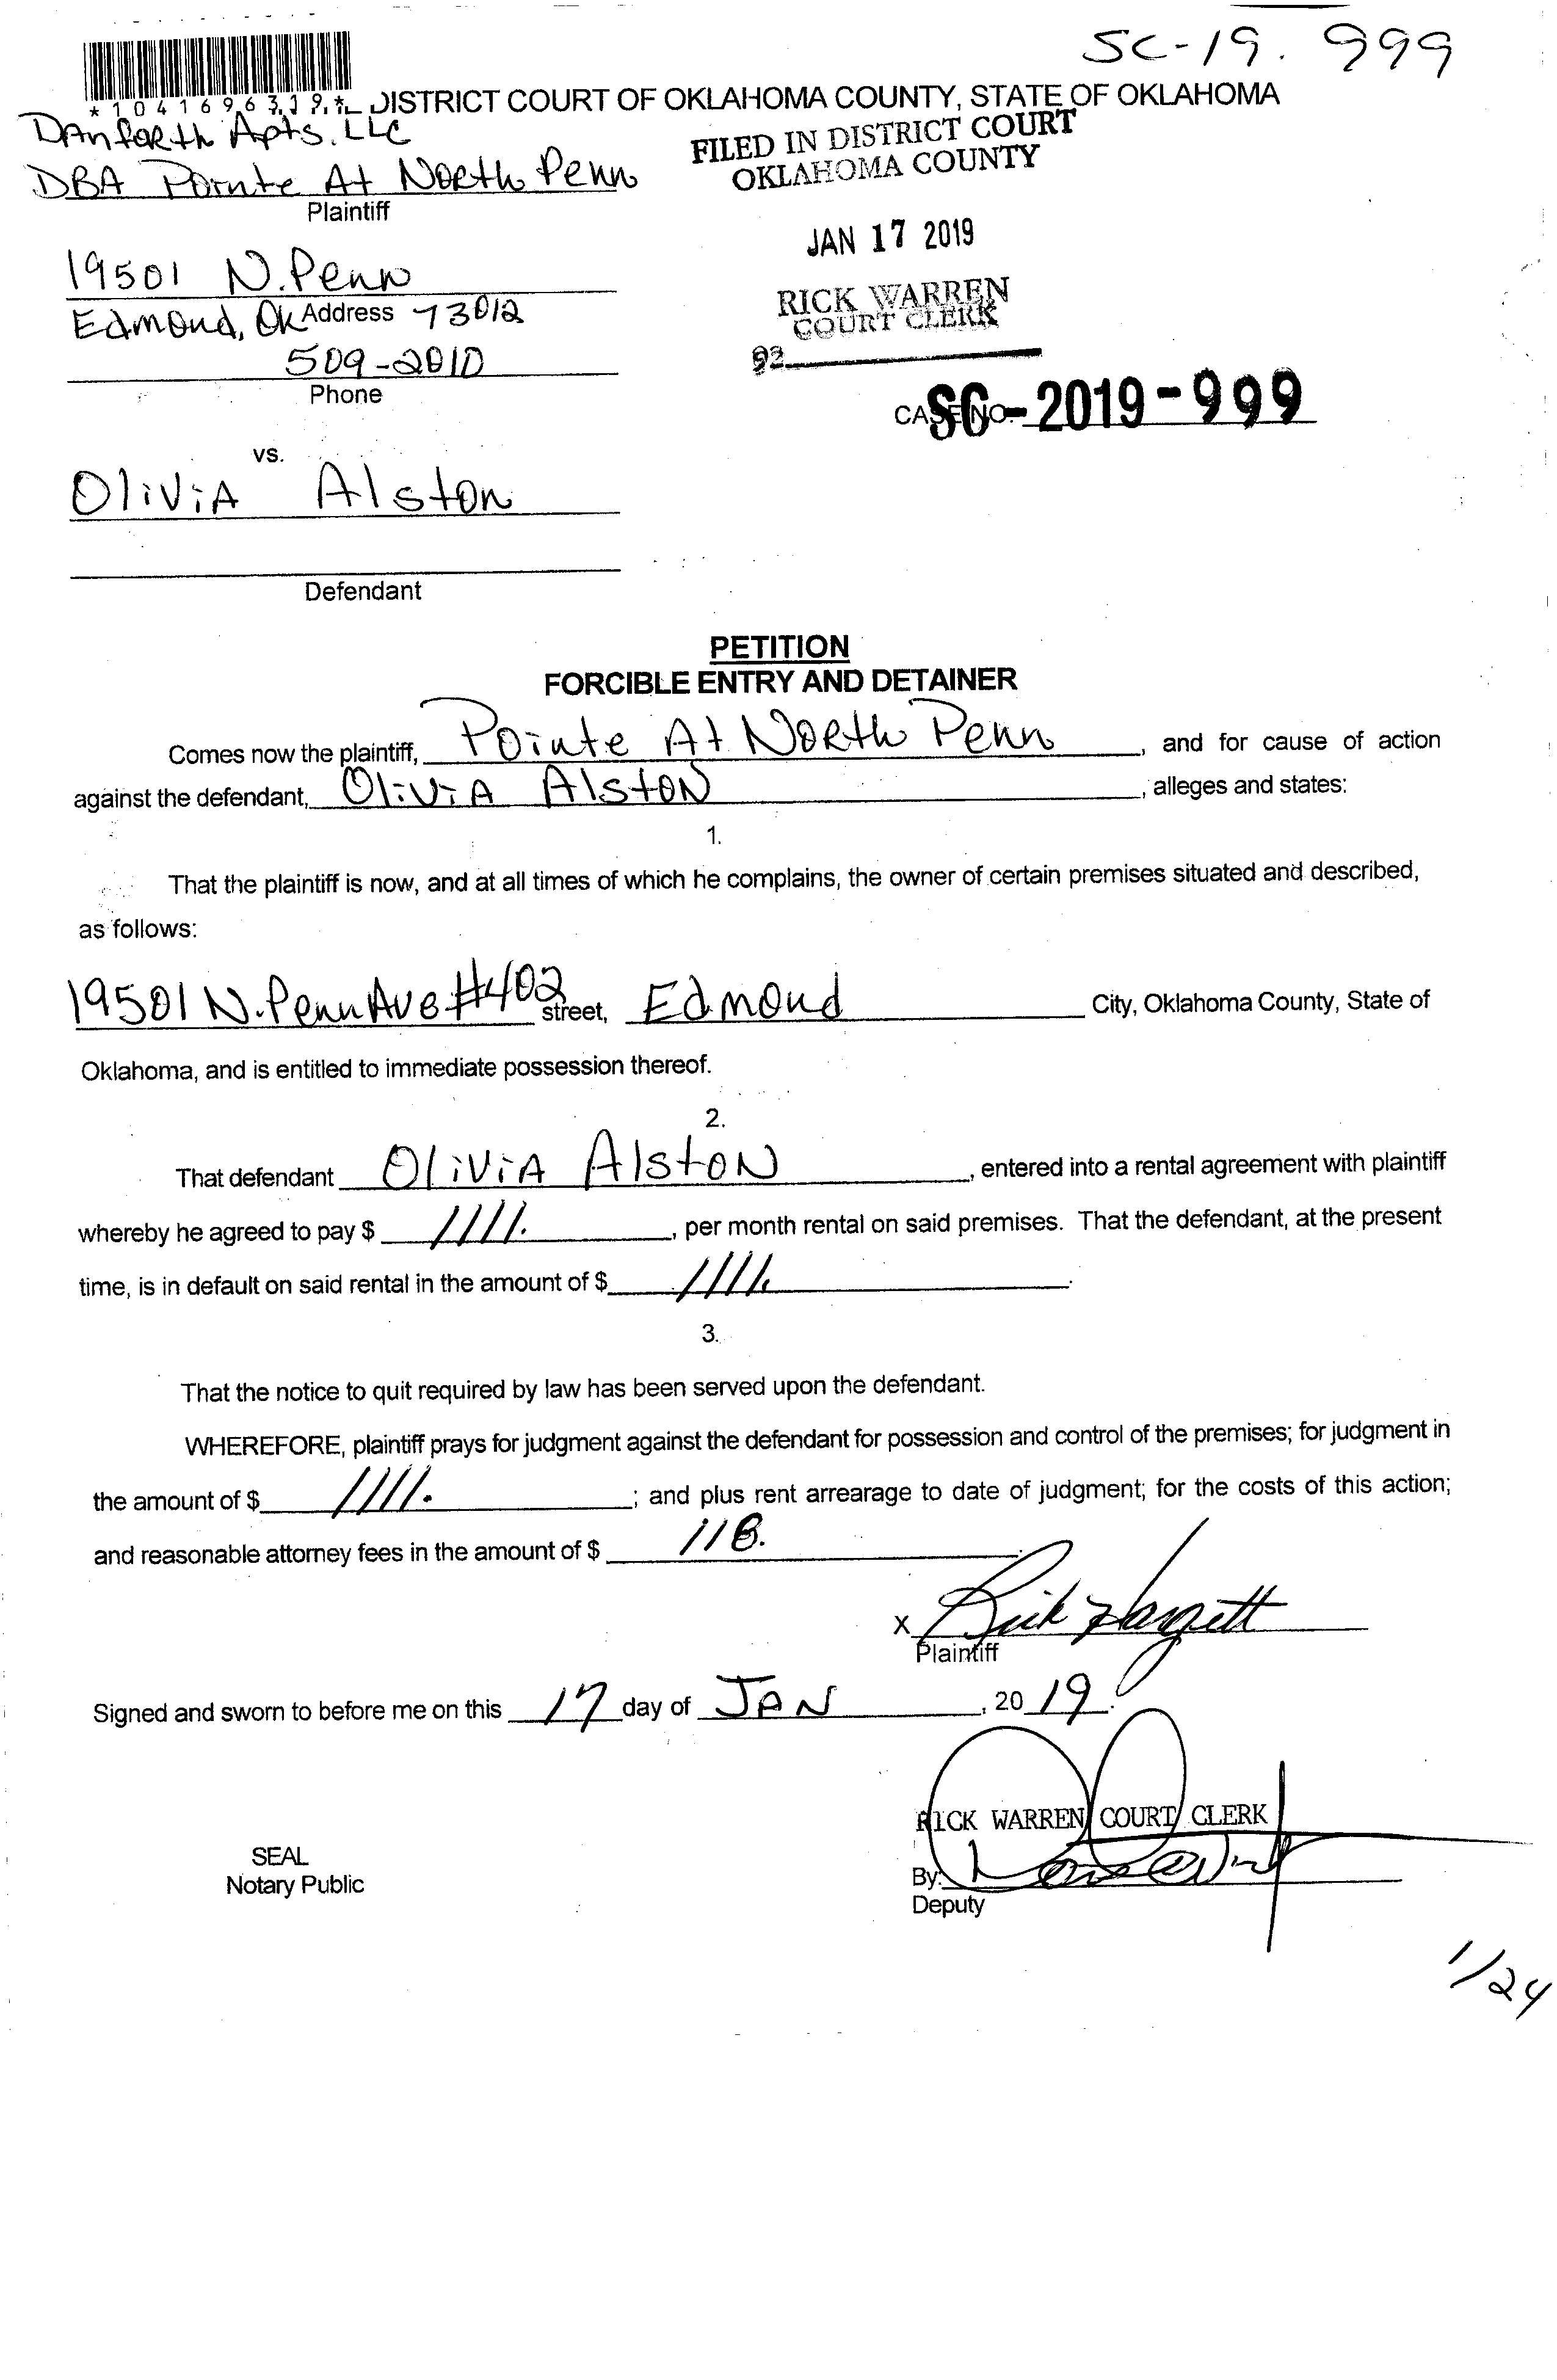 SC-19. 999
*1041696319*
DISTRICT COURT OF OKLAHOMA COUNTY, STATE OF OKLAHOMA
Danforth Apts. LLC
DBA Pointe At North Penn
Plaintiff
FILED IN DISTRICT COURT
OKLAHOMA COUNTY
JAN 17 2019
RICK WARREN
COURT CLERK
92
19501 N. Penn
Edmond, Ok Address 73012
509-2010
Phone
CASE NO. SC-2019-999
vs.
Olivia Alston
Defendant
PETITION
FORCIBLE ENTRY AND DETAINER
Comes now the plaintiff, Pointe At North Penn, and for cause of action
against the defendant, Olivia Alston, alleges and states:
1.
That the plaintiff is now, and at all times of which he complains, the owner of certain premises situated and described,
as follows:
19501 N. Penn Ave #402 street, Edmond City, Oklahoma County, State of
Oklahoma, and is entitled to immediate possession thereof.
2.
That defendant Olivia Alston, entered into a rental agreement with plaintiff
whereby he agreed to pay $ 1111., per month rental on said premises. That the defendant, at the present
time, is in default on said rental in the amount of $ 1111.
3.
That the notice to quit required by law has been served upon the defendant.
WHEREFORE, plaintiff prays for judgment against the defendant for possession and control of the premises; for judgment in
the amount of $ 1111.; and plus rent arrearage to date of judgment; for the costs of this action;
and reasonable attorney fees in the amount of $ 118.
X Rick Hargett
Plaintiff
Signed and sworn to before me on this 17 day of JAN, 20 19.
RICK WARREN COURT CLERK
SEAL
Notary Public
By:
Deputy
1/24